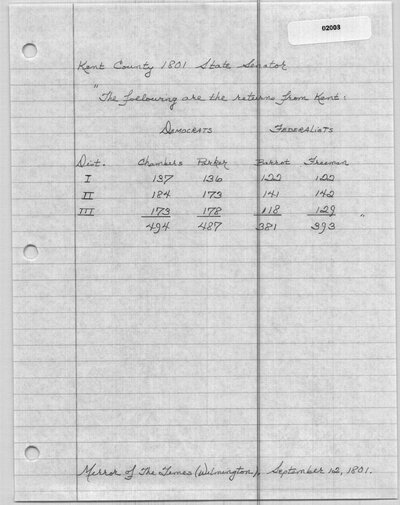 02003
Kent County 1801 State Senator
"The following are the returns from Kent:
DEMOCRATS FEDERALISTS
Dist. Chambers Parker Barrot Freeman
I 137 136 122 122
II 184 173 141 142
III 173 178 118 129
494 487 381 393 "
Mirror of The Times (Wilmington), September 12, 1801.